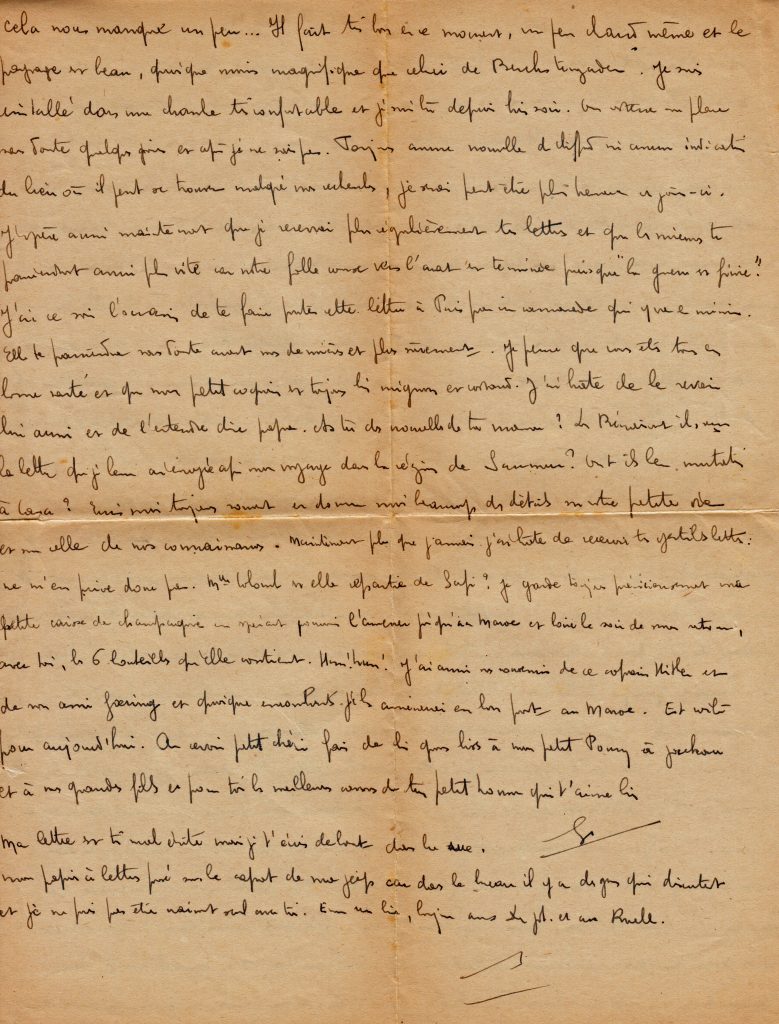 cela nous manque un peu... Il fait très bon en ce moment, un peu chaud même et le
paysage est beau, quoique moins magnifique que celui de Berchtesgaden. Je suis
installé dans une chambre très confortable et j'y suis depuis hier soir. On restera sur place
sans doute quelques jours et après je ne sais pas. Toujours aucune nouvelle de ni aucune indication
du lieu où il peut se trouver malgré mes recherches, je serai peut être plus heureux ces jours-ci.
J'espère aussi maintenant que je recevrai plus régulièrement tes lettres et que les miennes te
parviendront aussi plus vite car notre folle course vers l'avant est terminée puisque "la guerre est finie".
J'ai ce soir l'occasion de te faire porter cette lettre à Paris par un camarade qui y va en mission.
Elle te parviendra sans doute avant mes dernières et plus sûrement. Je pense que vous êtes tous en
bonne santé et que mon petit coquin est toujours très mignon et costaud. J'ai hâte de le revoir
lui aussi et de l'entendre dire papa. As tu des nouvelles de ta maman? Les ils reçu
la lettre que je leur ai envoyée après mon voyage dans la région de Saumur? Ont ils leur mutation
à Casa? Ecris moi toujours souvent en donnant moi beaucoup de détails sur votre petite vie
et sur celle de nos connaissances. Maintenant plus que jamais j'ai hâte de recevoir tes gentilles lettres:
ne m'en prive donc pas. Mme est elle repartie de Safi? Je garde toujours précieusement ma
petite caisse de champagne en espérant pouvoir l'amener jusqu'au Maroc et boire le soir de mon retour,
avec toi, les 6 bouteilles qu'elle contient. Hum! hum! J'ai aussi des souvenirs de ce copain Hitler et
de son ami Goering et quoique encombrants je les amènerai en bon port au Maroc. Et voilà
pour aujourd'hui. Au revoir petit chéri fais de très gros bisous à mon petit à
et à nos grandes et pour toi les meilleures caresses de ton petit homme qui t'aime bien
Ma lettre est très mal écrite mais je t'écris debout dans la rue.
mon papier à lettres posé sur le capot de ma jeep car dans le bureau il y a des gens qui discutent
et je ne puis pas être vraiment seul avec toi. Encore un bis, bonjour aux et aux